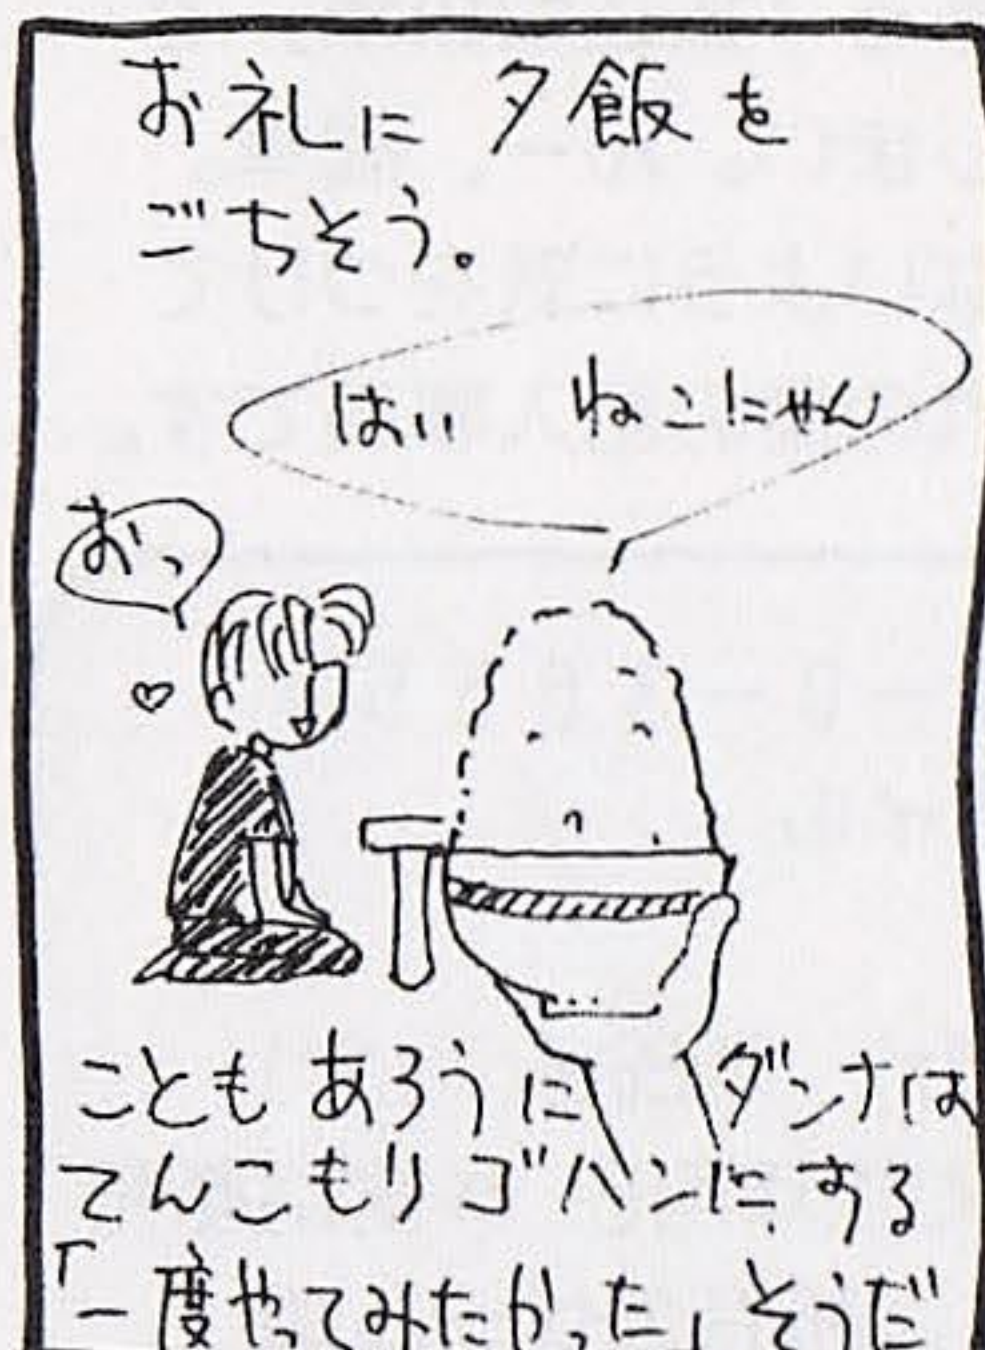 お礼に 夕飯を
ごちそう。
はい ねこにゃん
おっ
こともあろうに ダンナは
てんこもりゴハンにする
「一度やってみたかった」そうだ